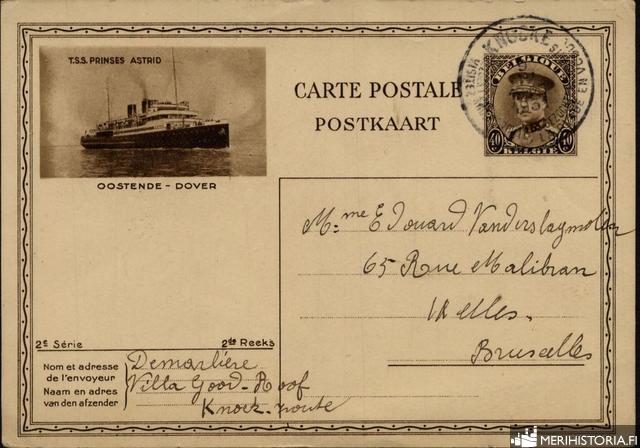 T.S.S. PRINSES ASTRID
OOSTENDE - DOVER
CARTE POSTALE
POSTKAART
KNOCKE
BELGIQUE
40 40
BELGIË
Mme Edouard Vanderslaghmolen
65 Rue Malibran
Ixelles.
Bruxelles
2e Série 2de Reeks
Nom et adresse
de l'envoyeur
Naam en adres
van den afzender
Demarlière
Villa Good-Roof
Knock-zoute
MERIHISTORIA.FI